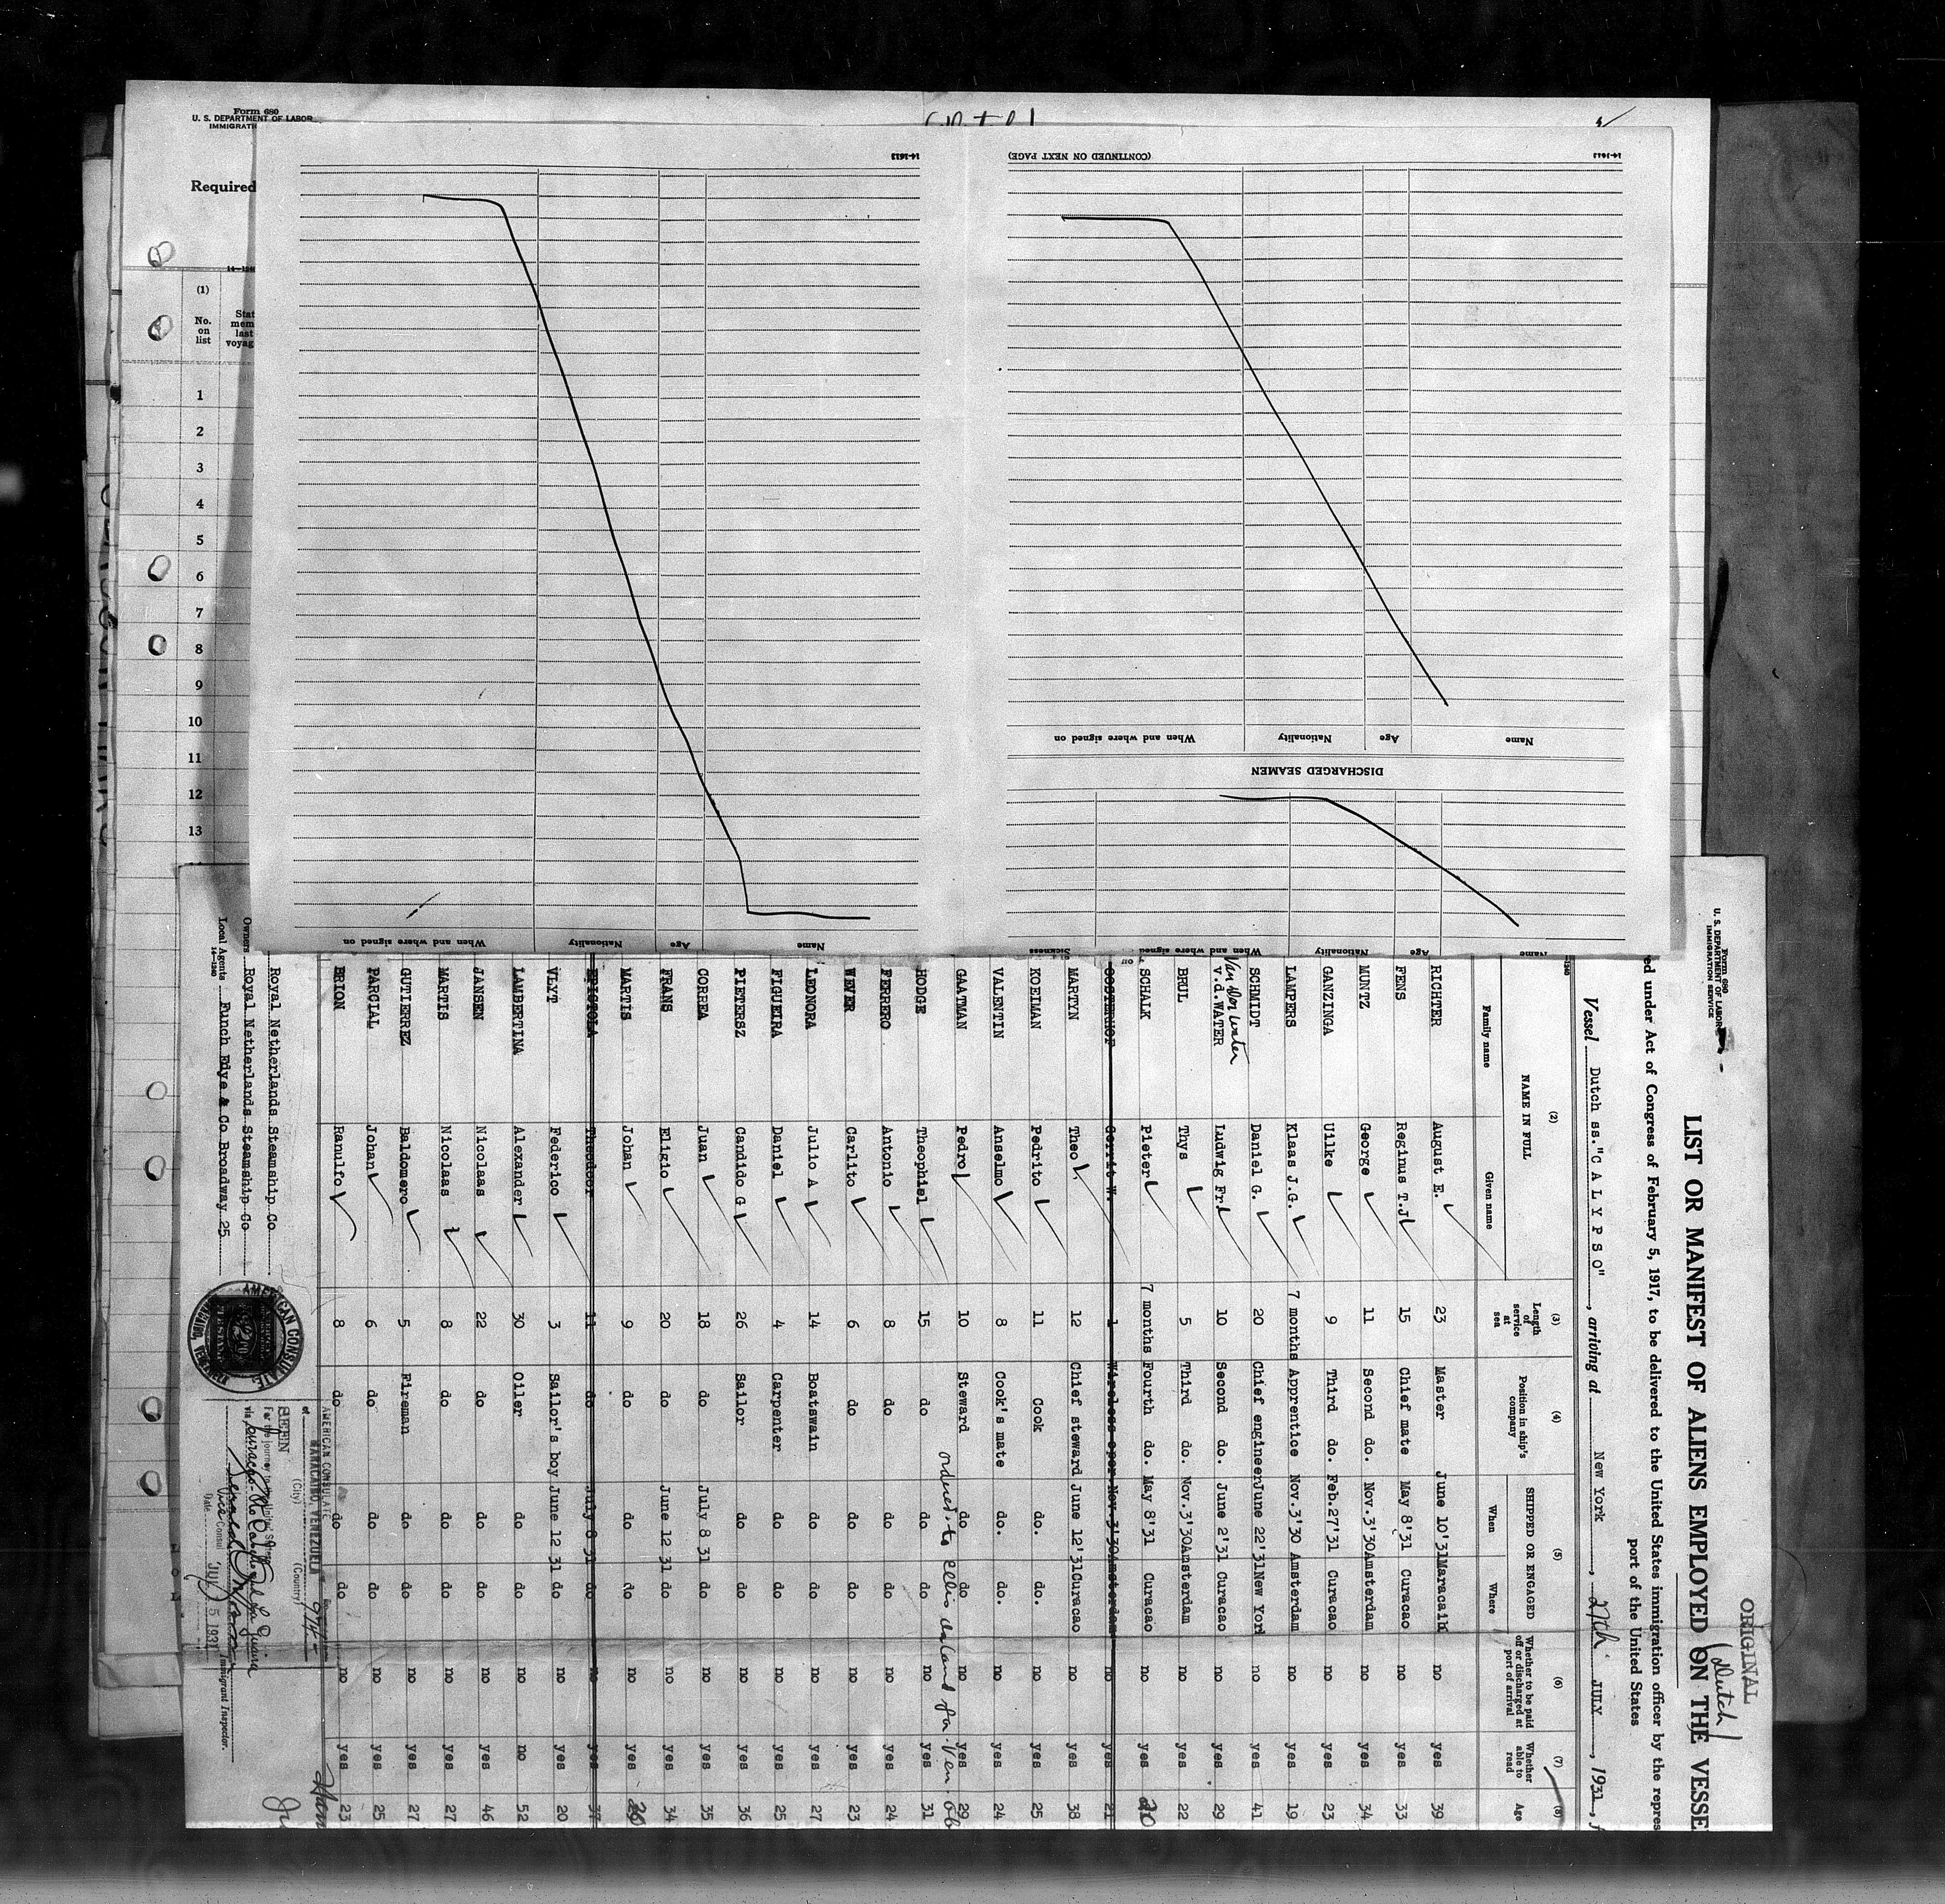 Form 680
U. S. DEPARTMENT OF LABOR
IMMIGRATI
Required
(1)
No.
on
list
Stat
mem
last
voyag
1
2
3
4
5
6
7
8
9
10
11
12
13
14-1613
(CONTINUED ON NEXT PAGE)
When and where signed on
Nationality
Age
Name
DISCHARGED SEAMEN
When and where signed on
Nationality
Age
Name
Sickness
When and where signed
Nationality
Age
Name
Form 680
U. S. DEPARTMENT OF LABOR
IMMIGRATION SERVICE
ORIGINAL
(Dutch)
LIST OR MANIFEST OF ALIENS EMPLOYED ON THE VESSE
ed under Act of Congress of February 5, 1917, to be delivered to the United States immigration officer by the repres
port of the United States
Vessel Dutch ss."C A L Y P S O", arriving at New York, 27th JULY, 1931, f
(2) (3) (4) (5) (6) (7) (8)
NAME IN FULL Length of service at sea Position in ship's company SHIPPED OR ENGAGED Whether to be paid off or discharged at port of arrival Whether able to read Age
Family name Given name When Where
RICHTER August E. 23 Master June 10'31 Maracaib no yes 39
FENS Reginus T.J 15 Chief mate May 8'31 Curacao no yes 33
MUNTZ George 11 Second do. Nov.3'30 Amsterdam no yes 34
GANZINGA Uilke 9 Third do. Feb.27'31 Curacao no yes 23
LAMPERS Klaas J.G. 7 months Apprentice Nov.3'30 Amsterdam no yes 19
SCHMIDT Daniel G. 20 Chief engineer June 22'31 New York no yes 41
Van der Water
v.d.WATER Ludwig Fr. 10 Second do. June 2'31 Curacao no yes 29
BRUL Thys 5 Third do. Nov.3'30 Amsterdam no yes 22
SCHALK Pieter 7 months Fourth do. May 8'31 Curacao no yes 20
OOSTERHOF Gerrit W. 1 Wireless oper Nov.3'30 Amsterdam no yes 21
MARTYN Theo 12 Chief steward June 12'31 Curacao no yes 38
KOEIMAN Pedrito 11 Cook do. do. no yes 25
VALENTIN Anselmo 8 Cook's mate do. do. no yes 24
GAATMAN Pedro 10 Steward do do no yes 29
ordered to Ellis Island for Ven. ob
HODGE Theophiel 15 do do do no yes 31
FERRERO Antonio 8 do do do no yes 24
WEVER Carlito 6 do do do no yes 23
LEONORA Julio A 14 Boatswain do do no yes 27
FIGUEIRA Daniel 4 Carpenter do do no yes 25
PIETERSZ Candido G 26 Sailor do do no yes 36
CORREA Juan 18 do July 8 31 do no yes 35
FRANS Eligio 20 do June 12 31 do no yes 34
MARTIS Johan 9 do do do no yes 20
Theodoor 11 do July 8 31 do no yes 37
VLYT Federico 3 Sailor's boy June 12 31 do no yes 20
LAMBERTINA Alexander 30 Oiler do do no no 52
JANSEN Nicolaas 22 do do do no yes 46
MARTIS Nicolaas 8 do do do no yes 27
GUTIERREZ Baldomero 5 Fireman do do no yes 27
PARCIAL Johan 6 do do do no yes 25
BRION Ranulfo 8 do do do no yes 23
Royal Netherlands Steamship Co
Owners Royal Netherlands Steamship Co
Local Agents Funch Edye & Co Broadway 25
14-1240
AMERICAN CONSULATE
MARACAIBO, VENEZUELA
AMERICAN CONSULATE
MARACAIBO, VENEZUELA
of (City) (Country)
SEEN
For the journey to the United States
via Curacao
Vice Consul
Date JULY 15 1931
Immigrant Inspector.